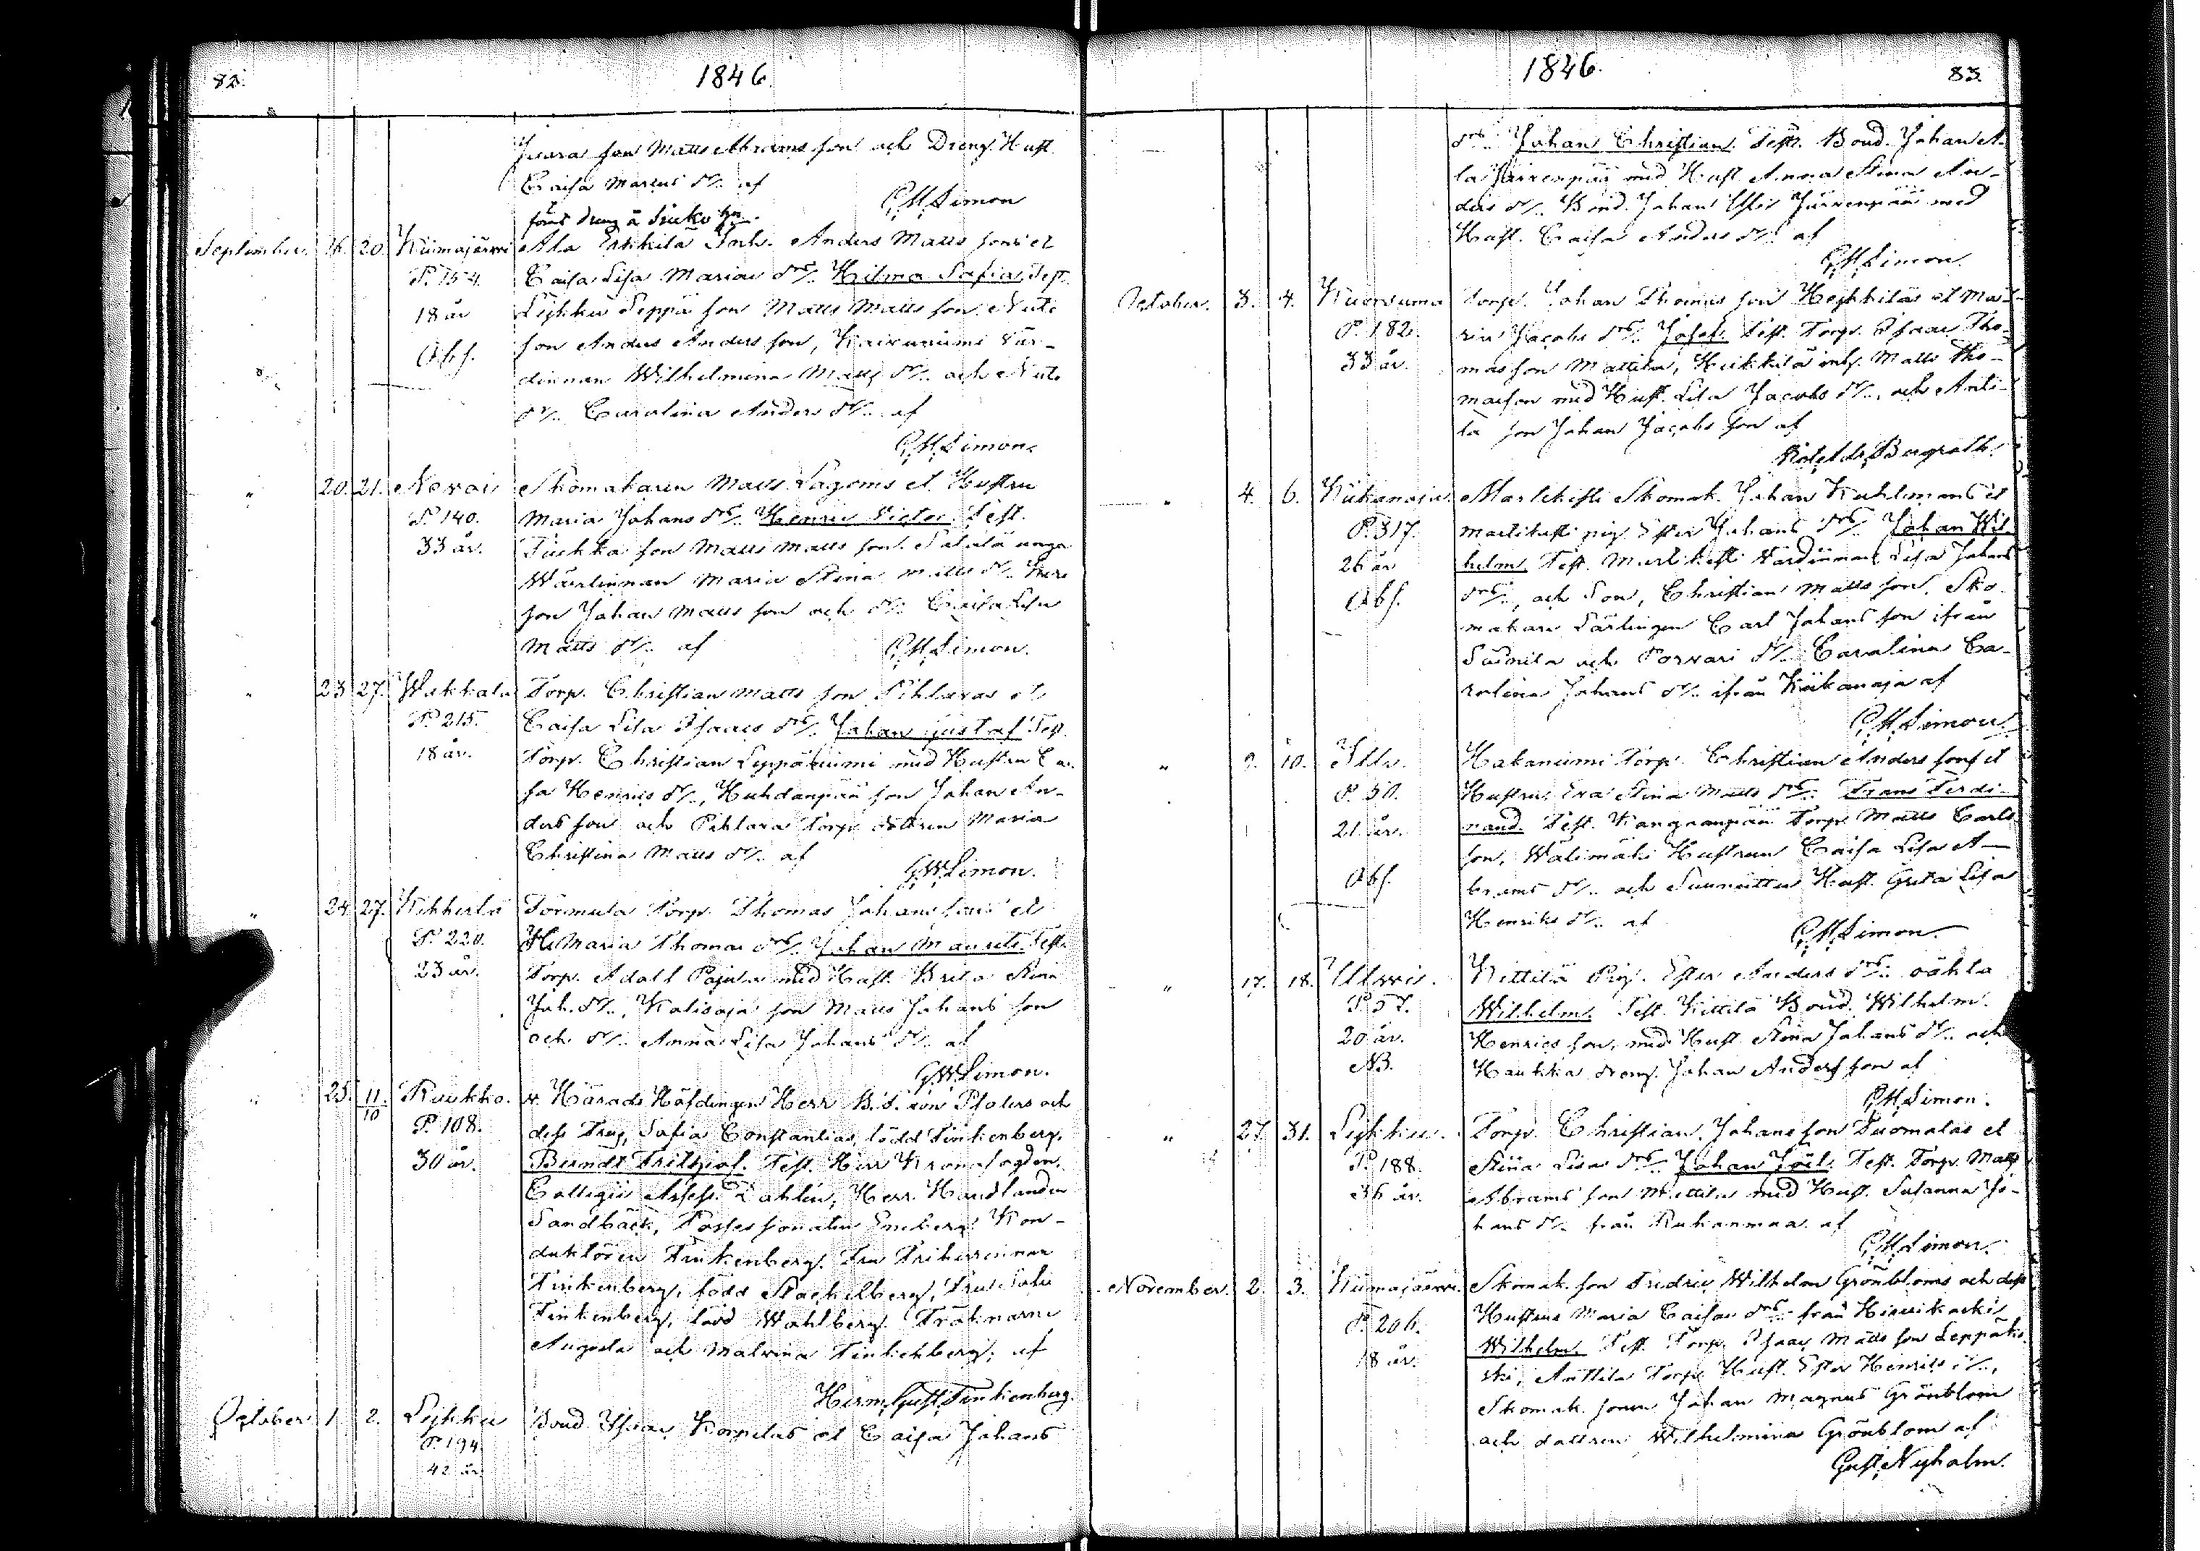 82.
1846
Juara son Matts Abrams son och Dreng. Hust.
Caisa Marcus dr. af
G.W.Limon
förs dreng å Sucko
September. 16. 20. Kiimajärvi Ala Eskkilä Inh. Anders Matts sons et
P. 154. Caisa Lisa Mariae drs. Hilma Safia. Test.
18 år Lijhku Seppä son Matts Matts son.
Abs. son Anders Anders son, Vär-
dinnan Wilhelmina Matts dr. och
dr. Carolina Anders dr. af
G.W.Limon.
" 20. 21. Nevois Skomakaren Matts Lagoms et Hustru
P. 140. Maria Johans drs. Henric Victor. Test.
33 år. son Matts Matts son. unga
Wärdinnan Maria Stina Matts dr.
son Johan Matts son och dr. Caisa Lisa
Matts dr. af G.W.Limon.
" 23. 27. Wakkala Torp. Christian Matts son Pihlavas et
P. 215. Caisa Lisa Isaacs drs. Johan Gustaf Test.
18 år. Torp. Christian Leppäniumi med Hustru Ca-
sa Henrics dr., Huhdanpää son Johan An-
ders son och Pihlava Torp. dottren Maria
Christina Matts dr. af
G.W.Limon.
" 24. 27. Kikkerlä Tormula Torp. Thomas Johans sons et
P. 220. H. Maria Thomae drs. Johan Maurits. Test.
23 år. Torp. Adolf Pajula med Hust. Brita Stina
Joh. dr., Kalisoja son Matts Johans son
och dr. Anna Lisa Johans dr. af
G.W.Limon.
" 25. 11/10 Ruukko. v. Härads Höfdingen Herr B.S. von Pfalers och
P. 108. dess Frug. Safia Constantias född Finkenberg,
30 år. Berndt Frithiof. Test. Herr Kronofogden,
Collegii Assess. Zahlen, Herr Handlanden
Sandbäck, Possessionaten Eneberg, Kon-
duktören Finkenberg. Fru Friherrinnan
Finkenberg, född Stackelberg, Fru Sofie
Finkenberg, född Wahlberg. Fröknarne
Augusta och Malvina Finkenberg; af
Herm. Gust. Finkenberg.
October 1. 2. Lijhku Bond. Isaac Korpelas et Caisa Johans
P. 194.
42 år.
1846.
83.
drs. Johan Christian. Test. Bond. Johan A-
la Järvenpää med Hust. Anna Stina An-
ders dr. Bond. Johan Ylis Järvenpää med
Hust. Caisa Anders dr. af
G.W.Limon.
October. 3. 4. Kuorsuma Torp. Johan Thomas son Hejkkiläs et Ma-
P. 182. ria Jacobs drs. Josef. Test. Torp. Isaac Tho-
33 år. mas son Mattila, Heikkilä inh. Matts Tho-
maeson med Hust. Lisa Jacobs dr., och Anti-
la son Johan Jacobs son af
Bergroth.
" 4. 6. Kiikanoja Martikesti Skomak. Johan Kuhlmans et
P. 317. Martikesti pig. Ester Johans drs. Johan Wil-
26 år helm. Test. Martikesti Wärdinnan Lisa Johans
Abs. dr., och Son, Christian Matts son. Sko-
makare Lärlingen Carl Johans son ifrån
Suonila och Porvari dr. Carolina Ca-
rolina Johans dr. ifrån Kiikanoja af
G.W.Limon.
" 9. 10. Illo. Hakaniemi Torp. Christian Anders sons et
P. 50. Hustrus Eva Stina Matts drs. Frans Ferdi-
21 år. nand. Test. Kangaanpää Torp. Matts Carls
Abs. son, Wälimäki Hustrun Caisa Lisa A-
brams dr. och Hust. Greta Lisa
Henriks dr. af G.W.Limon.
" 17. 18. Ullvis. Kittilä Pig. Ester Anders drs. oäkta
P. 57. Wilhelm. Test. Kittilä Bond. Wilhelm
20 år. Henrics son, med Hust. Stina Johans dr. och
NB. Haukka dreng. Johan Anders son af
G.W.Limon.
" 27. 31. Lijhku. Torp. Christian Johans son Tuomalas et
P. 188. Stina Lisa drs. Johan Joel. Test. Torp. Matts
36 år. Abrams son Mattila med Hust. Susanna Jo-
hans dr. från Ruhanmaa. af
G.W.Limon.
November. 2. 3. Kiimajärvi. Skomak. son Fredric Wilhelm Grönbloms och dess
P. 206. Hustrus Maria Caisas drs. från
18 år. Wilhelm. Test. Torp. Isaac Matts son Leppäko-
ski, Anttila Torp. Hust. Ester Henriks dr.,
Skomak. sonen Johan Magnus Grönblom
och dottren Wilhelmina Grönblom af
Gust. Nyholm.